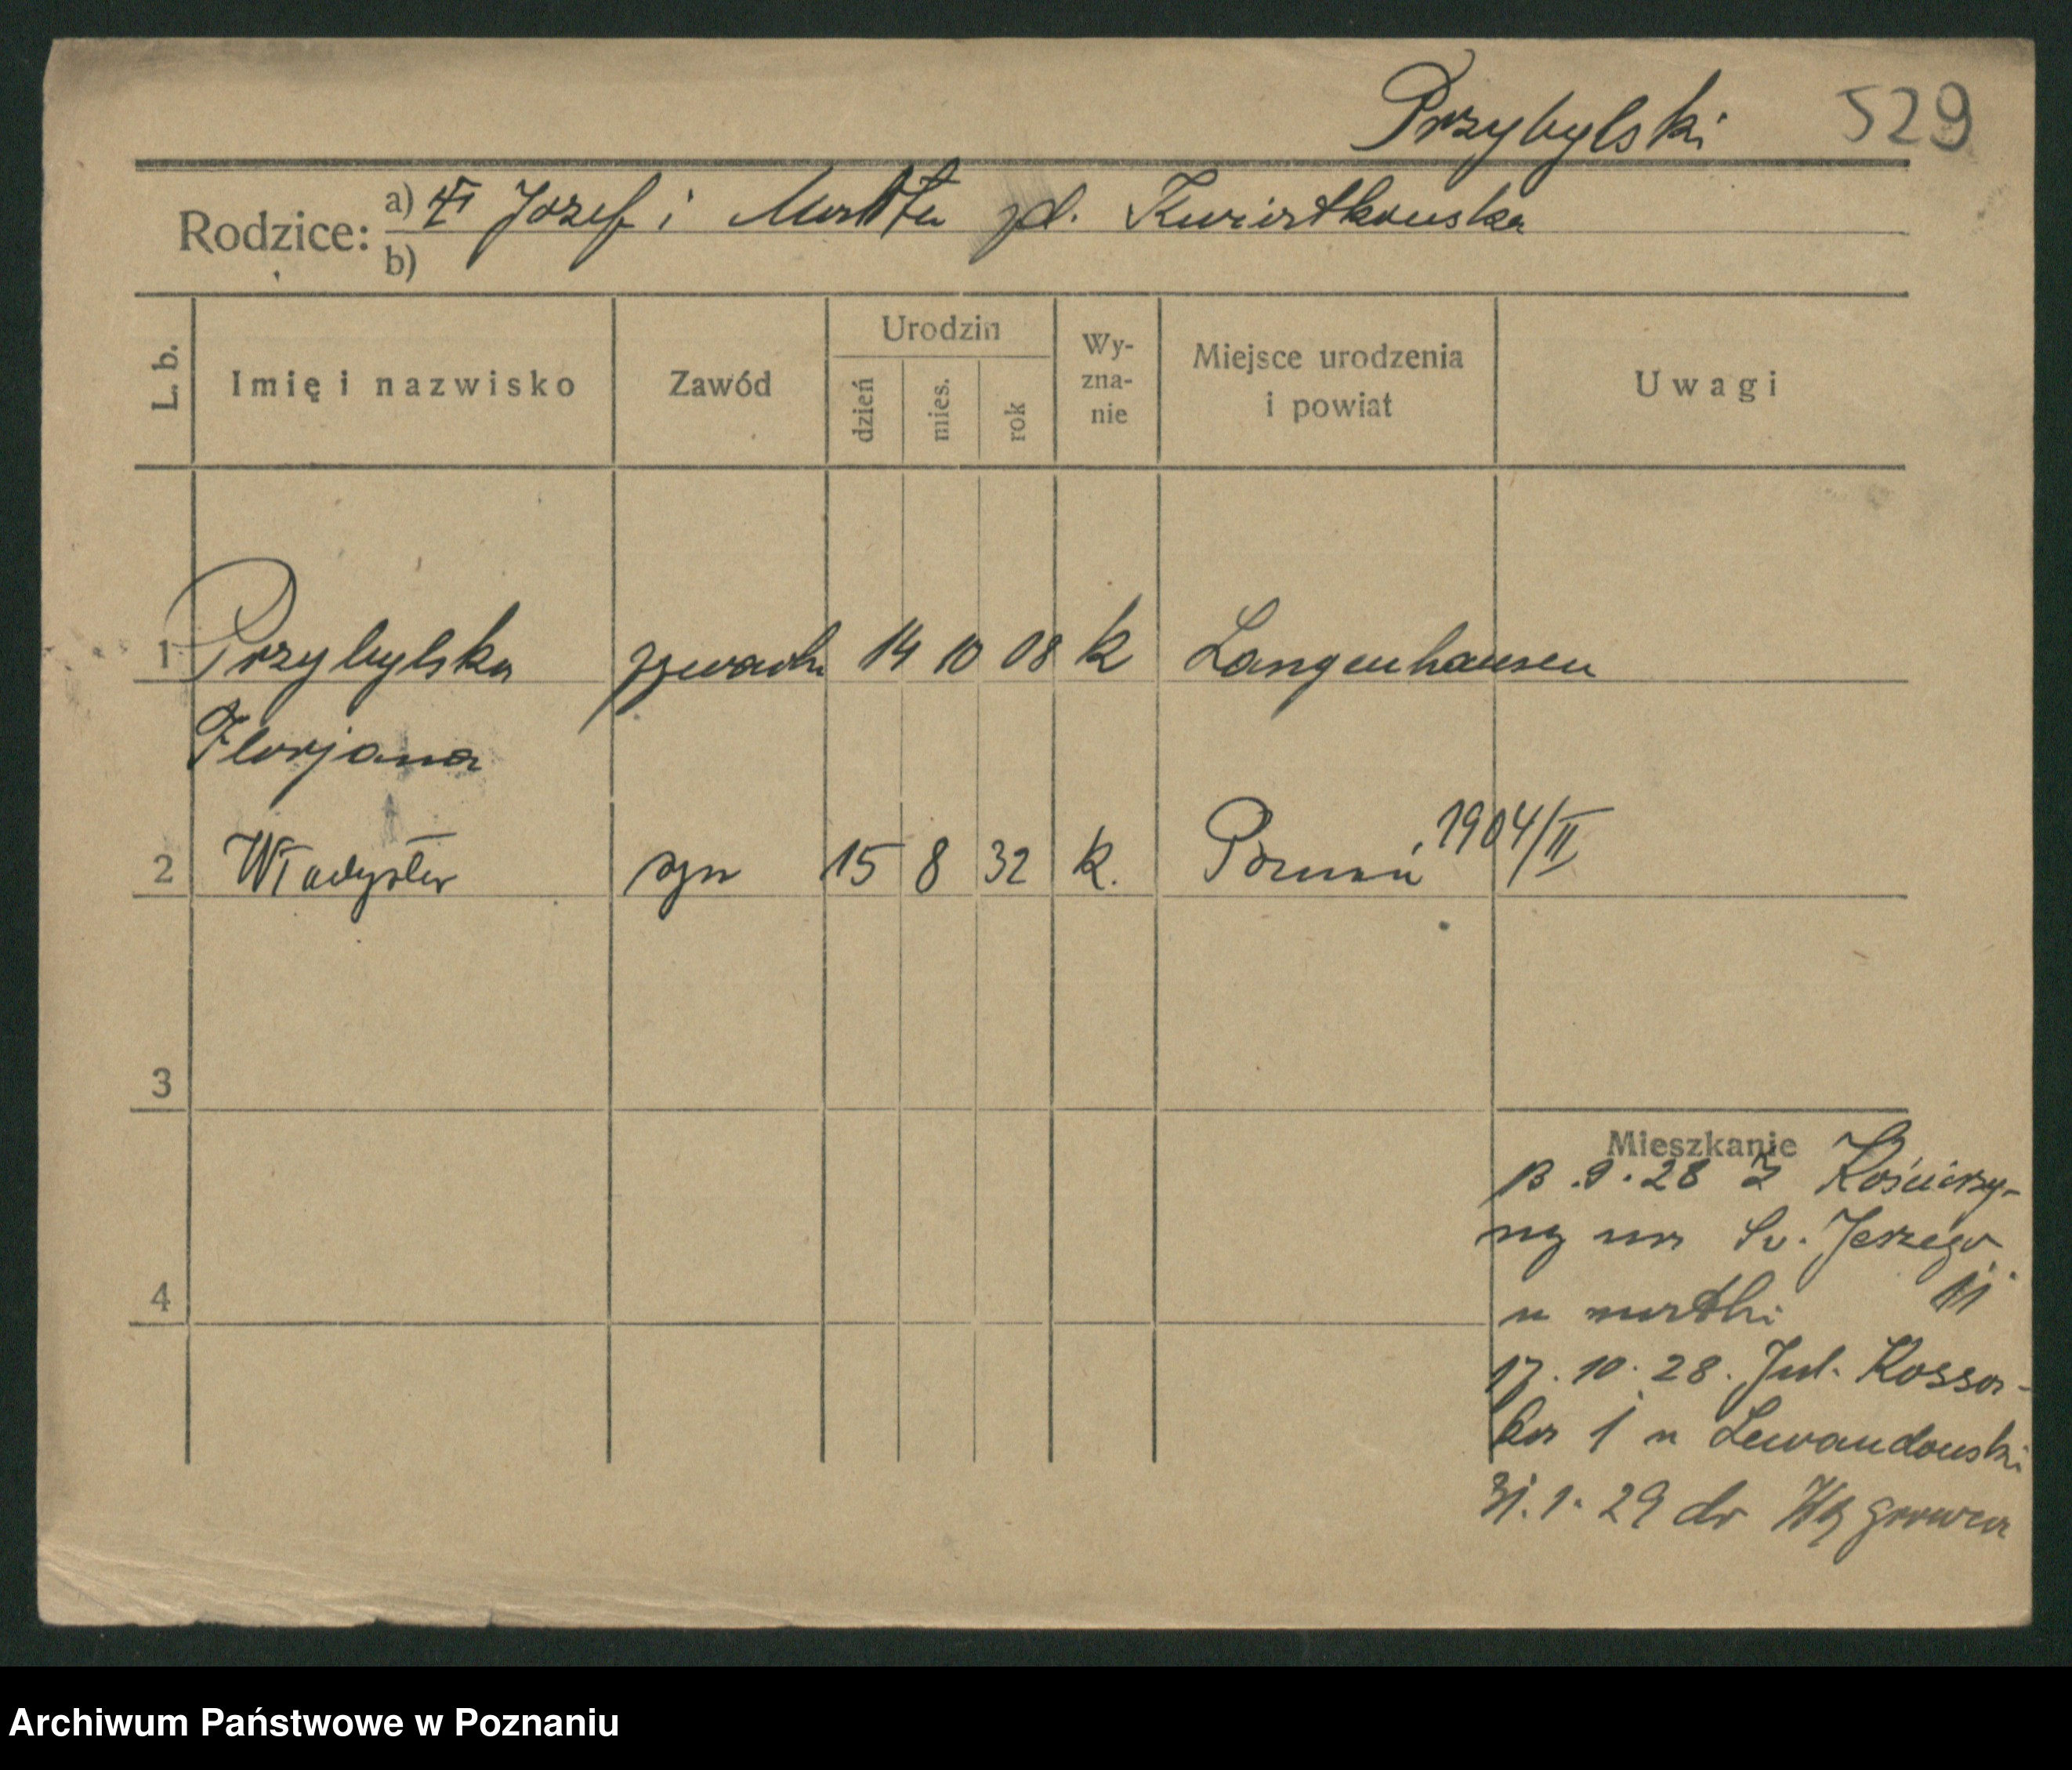 Przybylski 529
Rodzice: a) Józef i Marta zd. Kwiatkowska
b)
L. b. Imię i nazwisko Zawód Urodzin dzień mies. rok Wy-zna-nie Miejsce urodzenia i powiat Uwagi
1 Przybylska 14 10 08 k Langenhausen
Florjana
2 Władysław syn 15 8 32 k. Poznań 1904/II
3
Mieszkanie
13.9.28 z Kościerzy-
ny na Św. Jerzego
u matki 11
4
17.10.28. Jul. Kossa-
ka 1 u Lewandowski
31.1.29 do Wągrowca
Archiwum Państwowe w Poznaniu